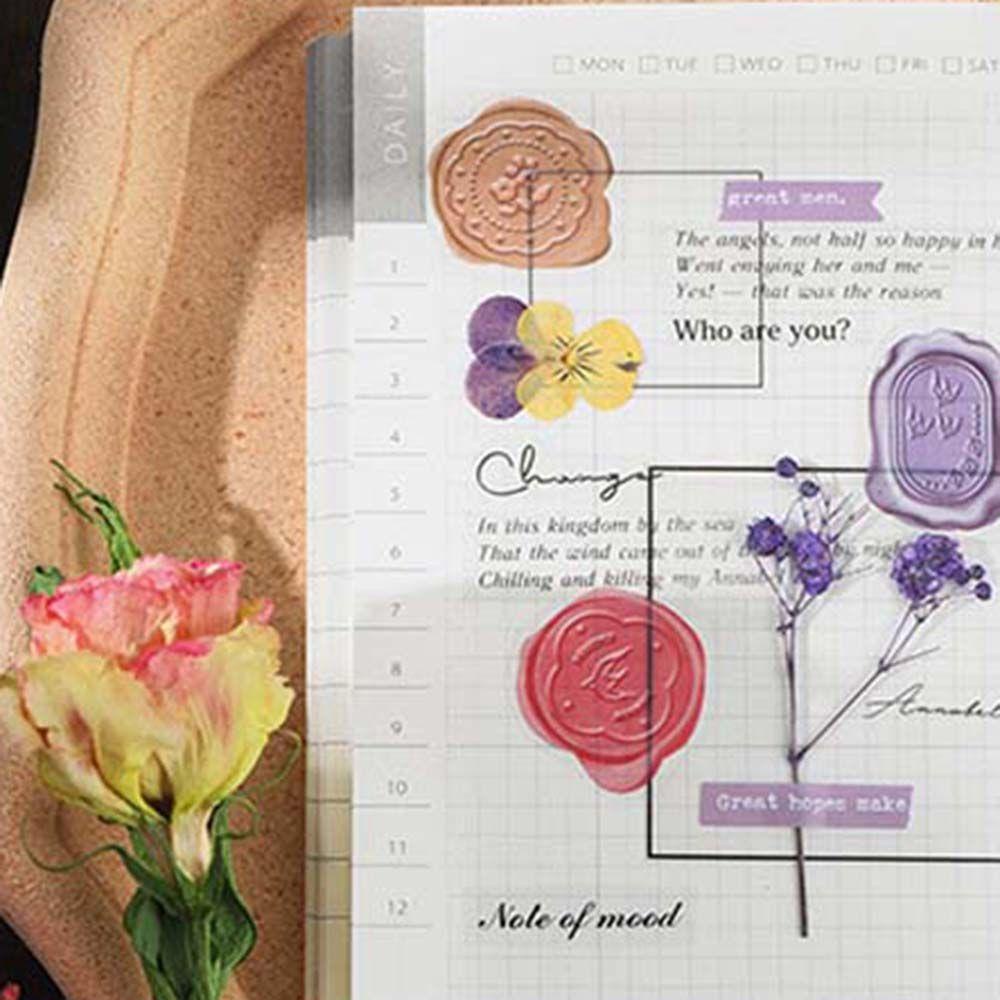 DAILY
MON TUE WED THU FRI SAT
great men.
The angels, not half so happy in
Went envying her and me —
Yes! — that was the reason
Who are you?
1
2
3
4
5
6
7
8
9
10
11
12
Change
In this kingdom by the sea
That the wind came out of by nigh
Chilling and killing my Annabel
Annabel
Great hopes make
Note of mood